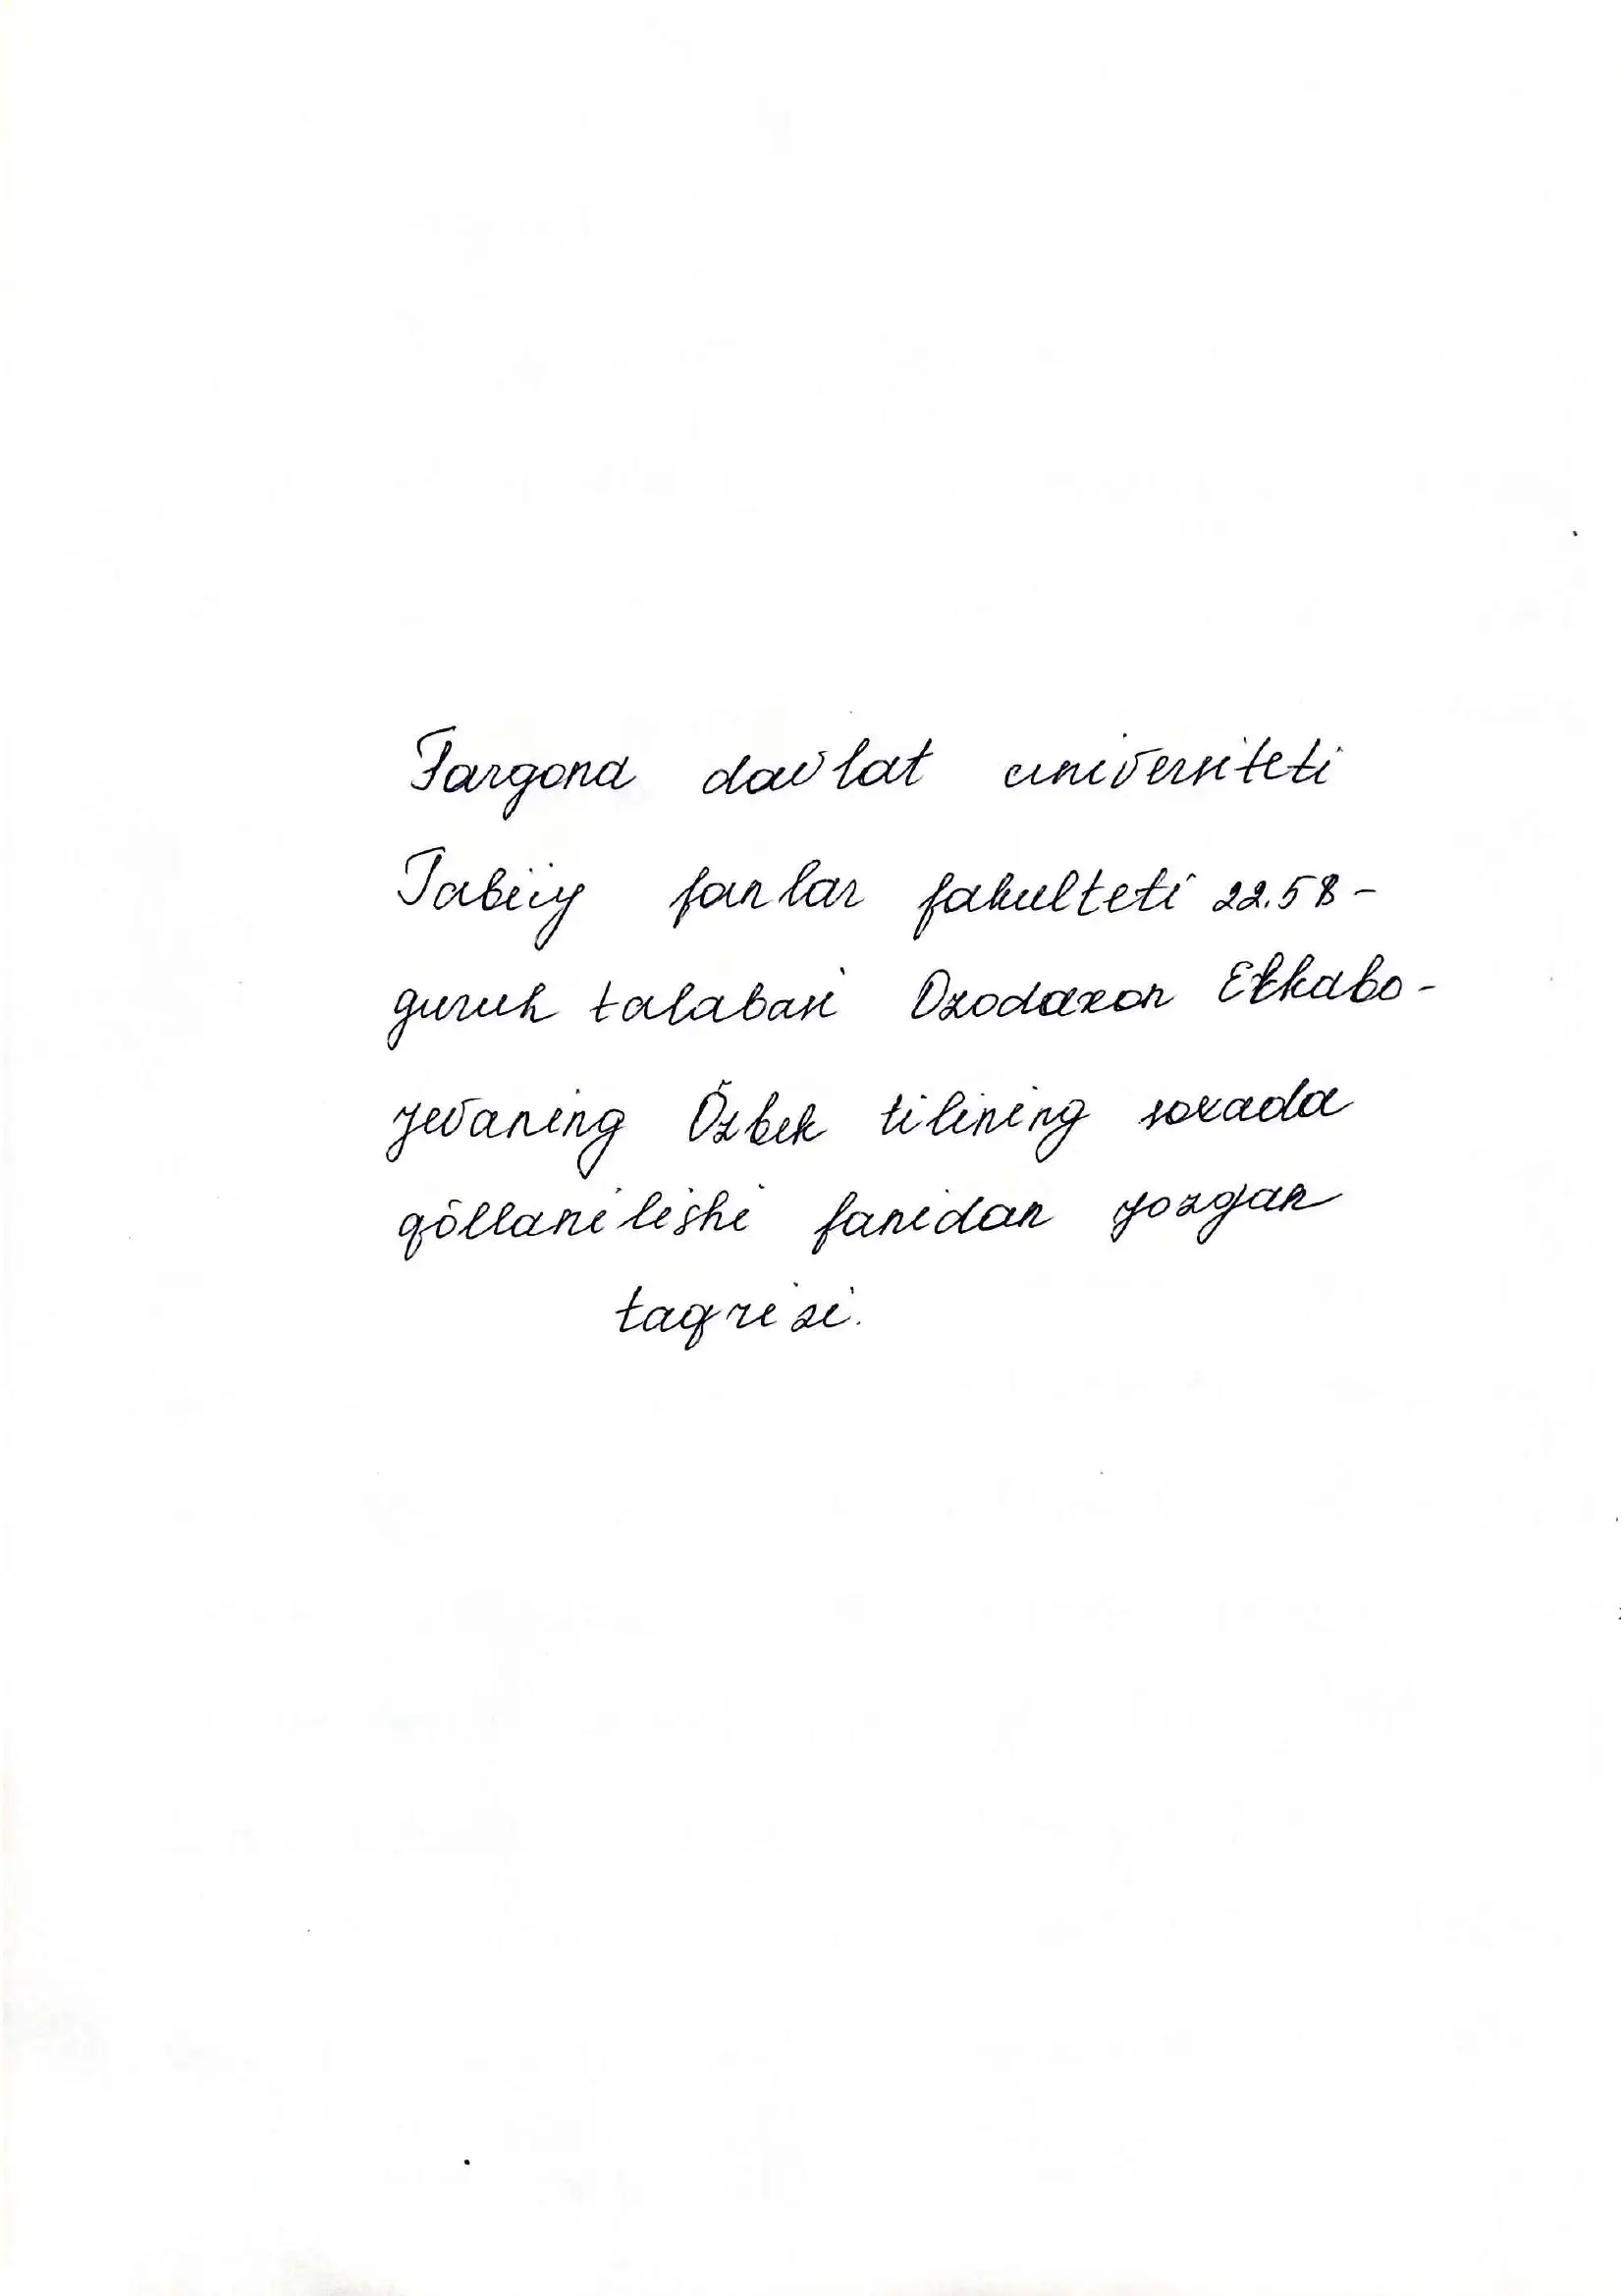 Fargona davlat universiteti
Tabiiy fanlar fakulteti 22.58-
guruh talabasi Ozodaxon
yevaning Õzbek tilining soxada
qõllanilishi fanidan yozgan
taqrizi.